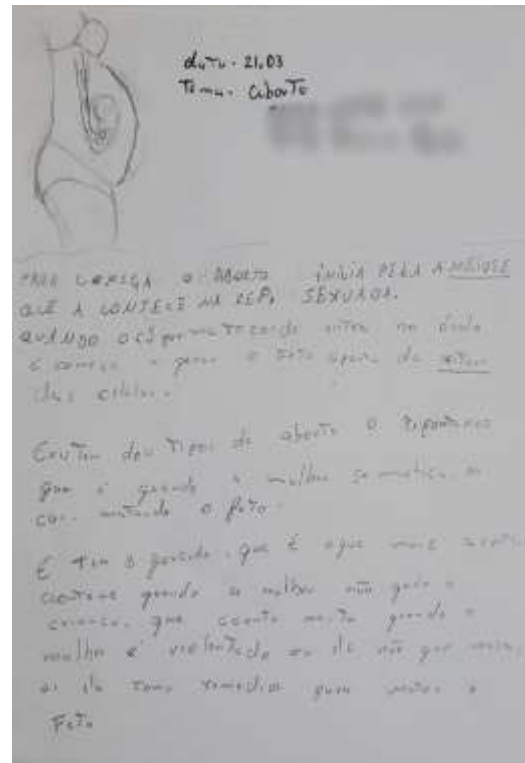 data. 21.03
Tema. aborto
PARA COMEÇA O ABORTO INICIA PELA A MEIOSE
QUE A CONTECE NA REP. SEXUADA.
QUANDO O espermatozoide entra no óvulo
e começa a gerar o feto a
das células.
Existem dois tipos de aborto o espontaneo
que é quando a mulher
o feto.
E tem o que é o que mais
acontece quando a mulher não quer a
criança, que quando a
mulher é violentada ou ela não quer mesmo,
ai ela toma remedios para matar o
Feto